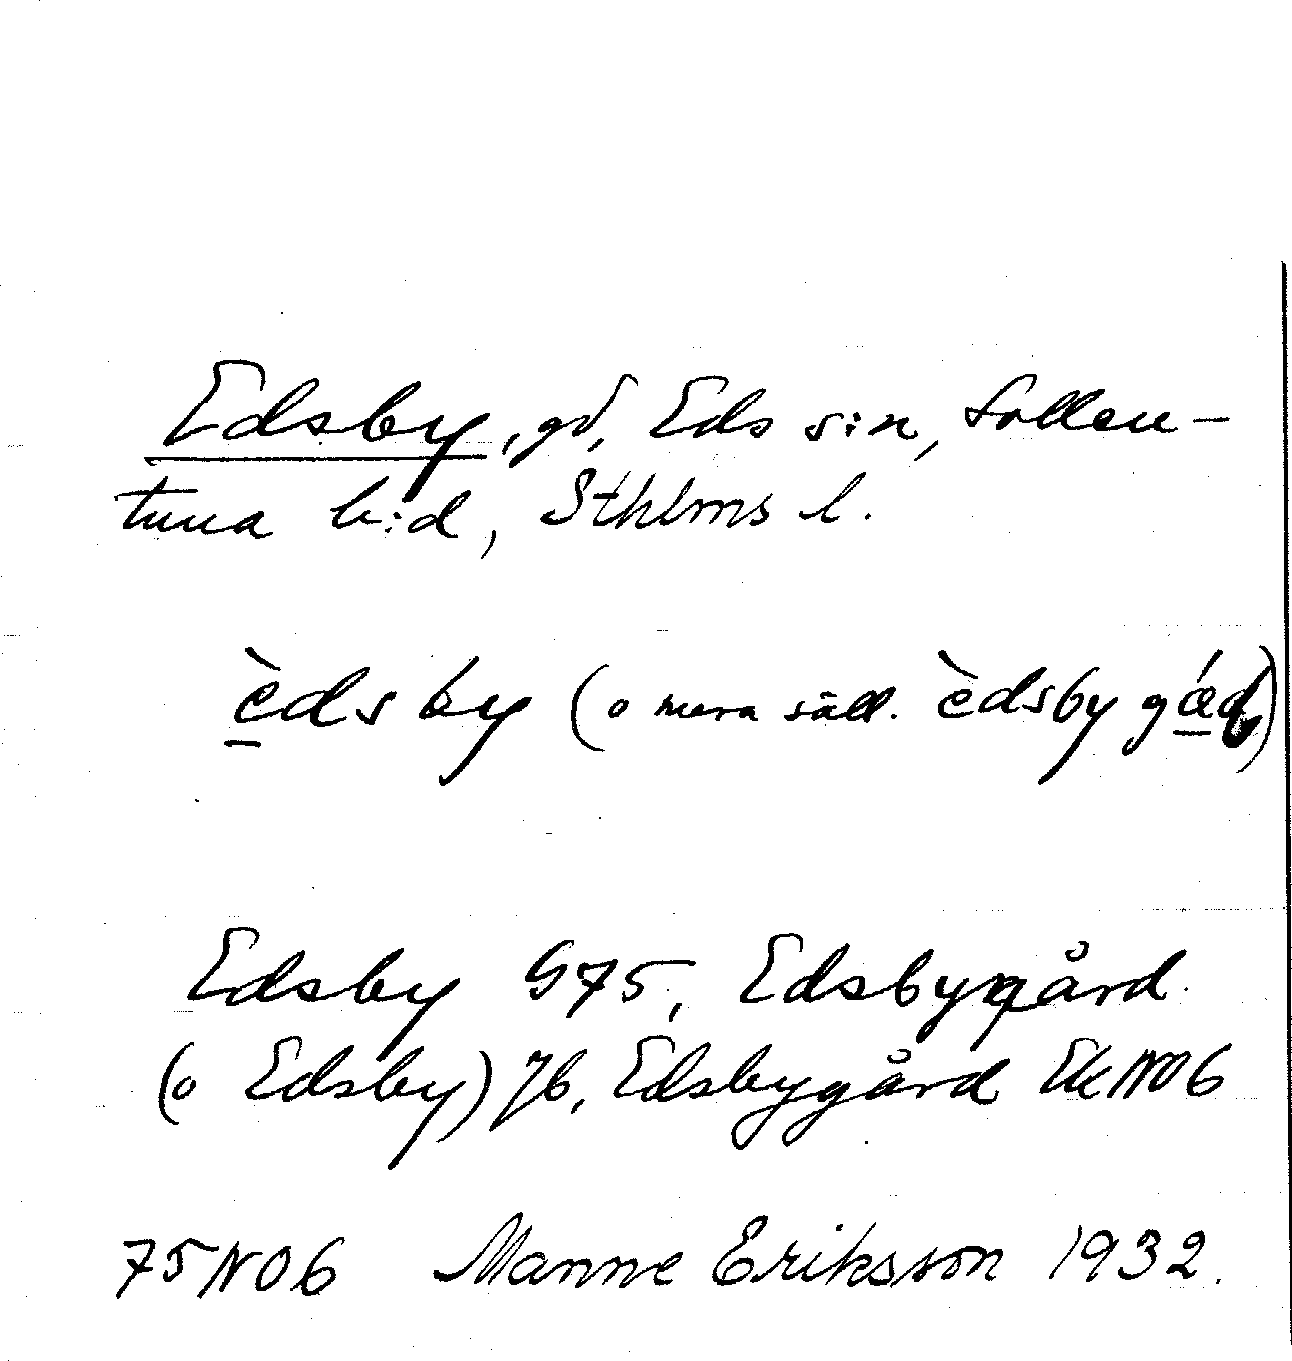 Edsby, gd, Eds s:n, Sollen-
tuna h:d, Sthlms l.
èdsby (o mera säll. èdsbygá)
Edsby G75, Edsbygård
(o Edsby) Jb, Edsbygård Ek NO6
75 NO6 Manne Eriksson 1932.